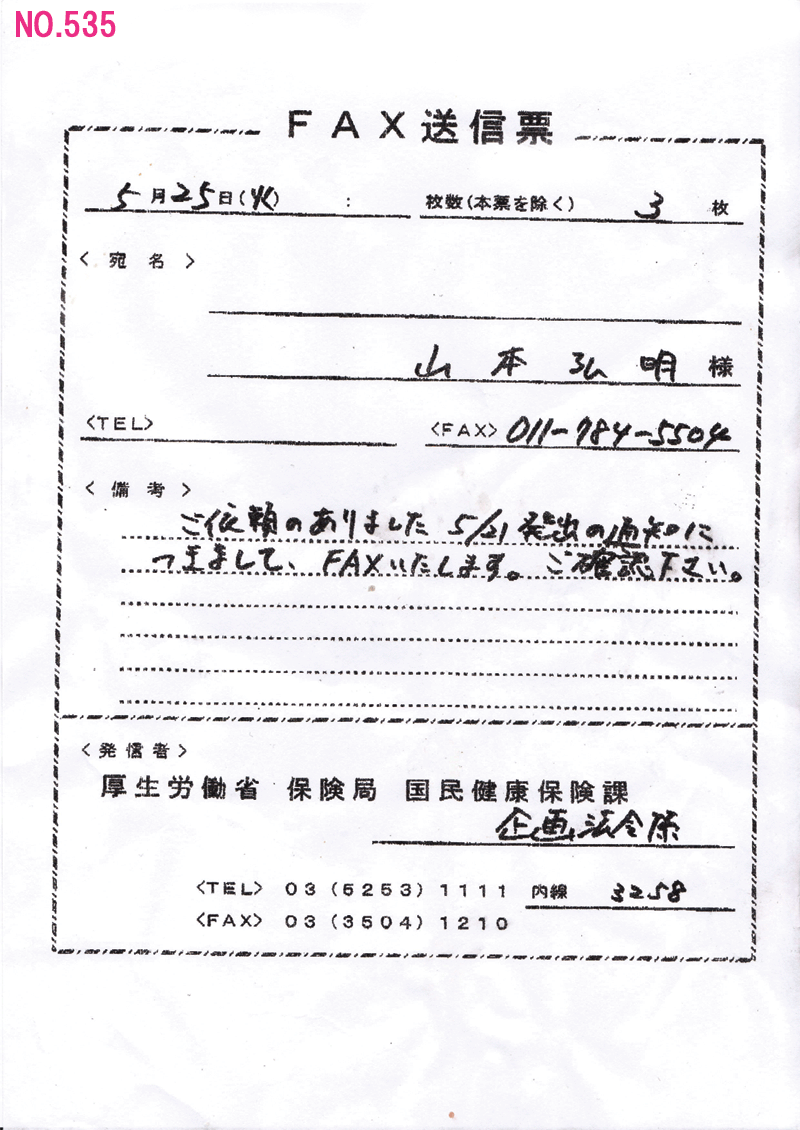 NO.535
FAX送信票
5月25日(火) : 枚数(本票を除く) 3 枚
<宛名>
山本弘明様
<TEL> <FAX> 011-784-5504
<備考>
ご依頼のありました 5/21発出の通知に
つきまして、FAXいたします。ご確認下さい。
<発信者>
厚生労働省 保険局 国民健康保険課
企画法令係
<TEL> 03(5253)1111 内線 3258
<FAX> 03(3504)1210